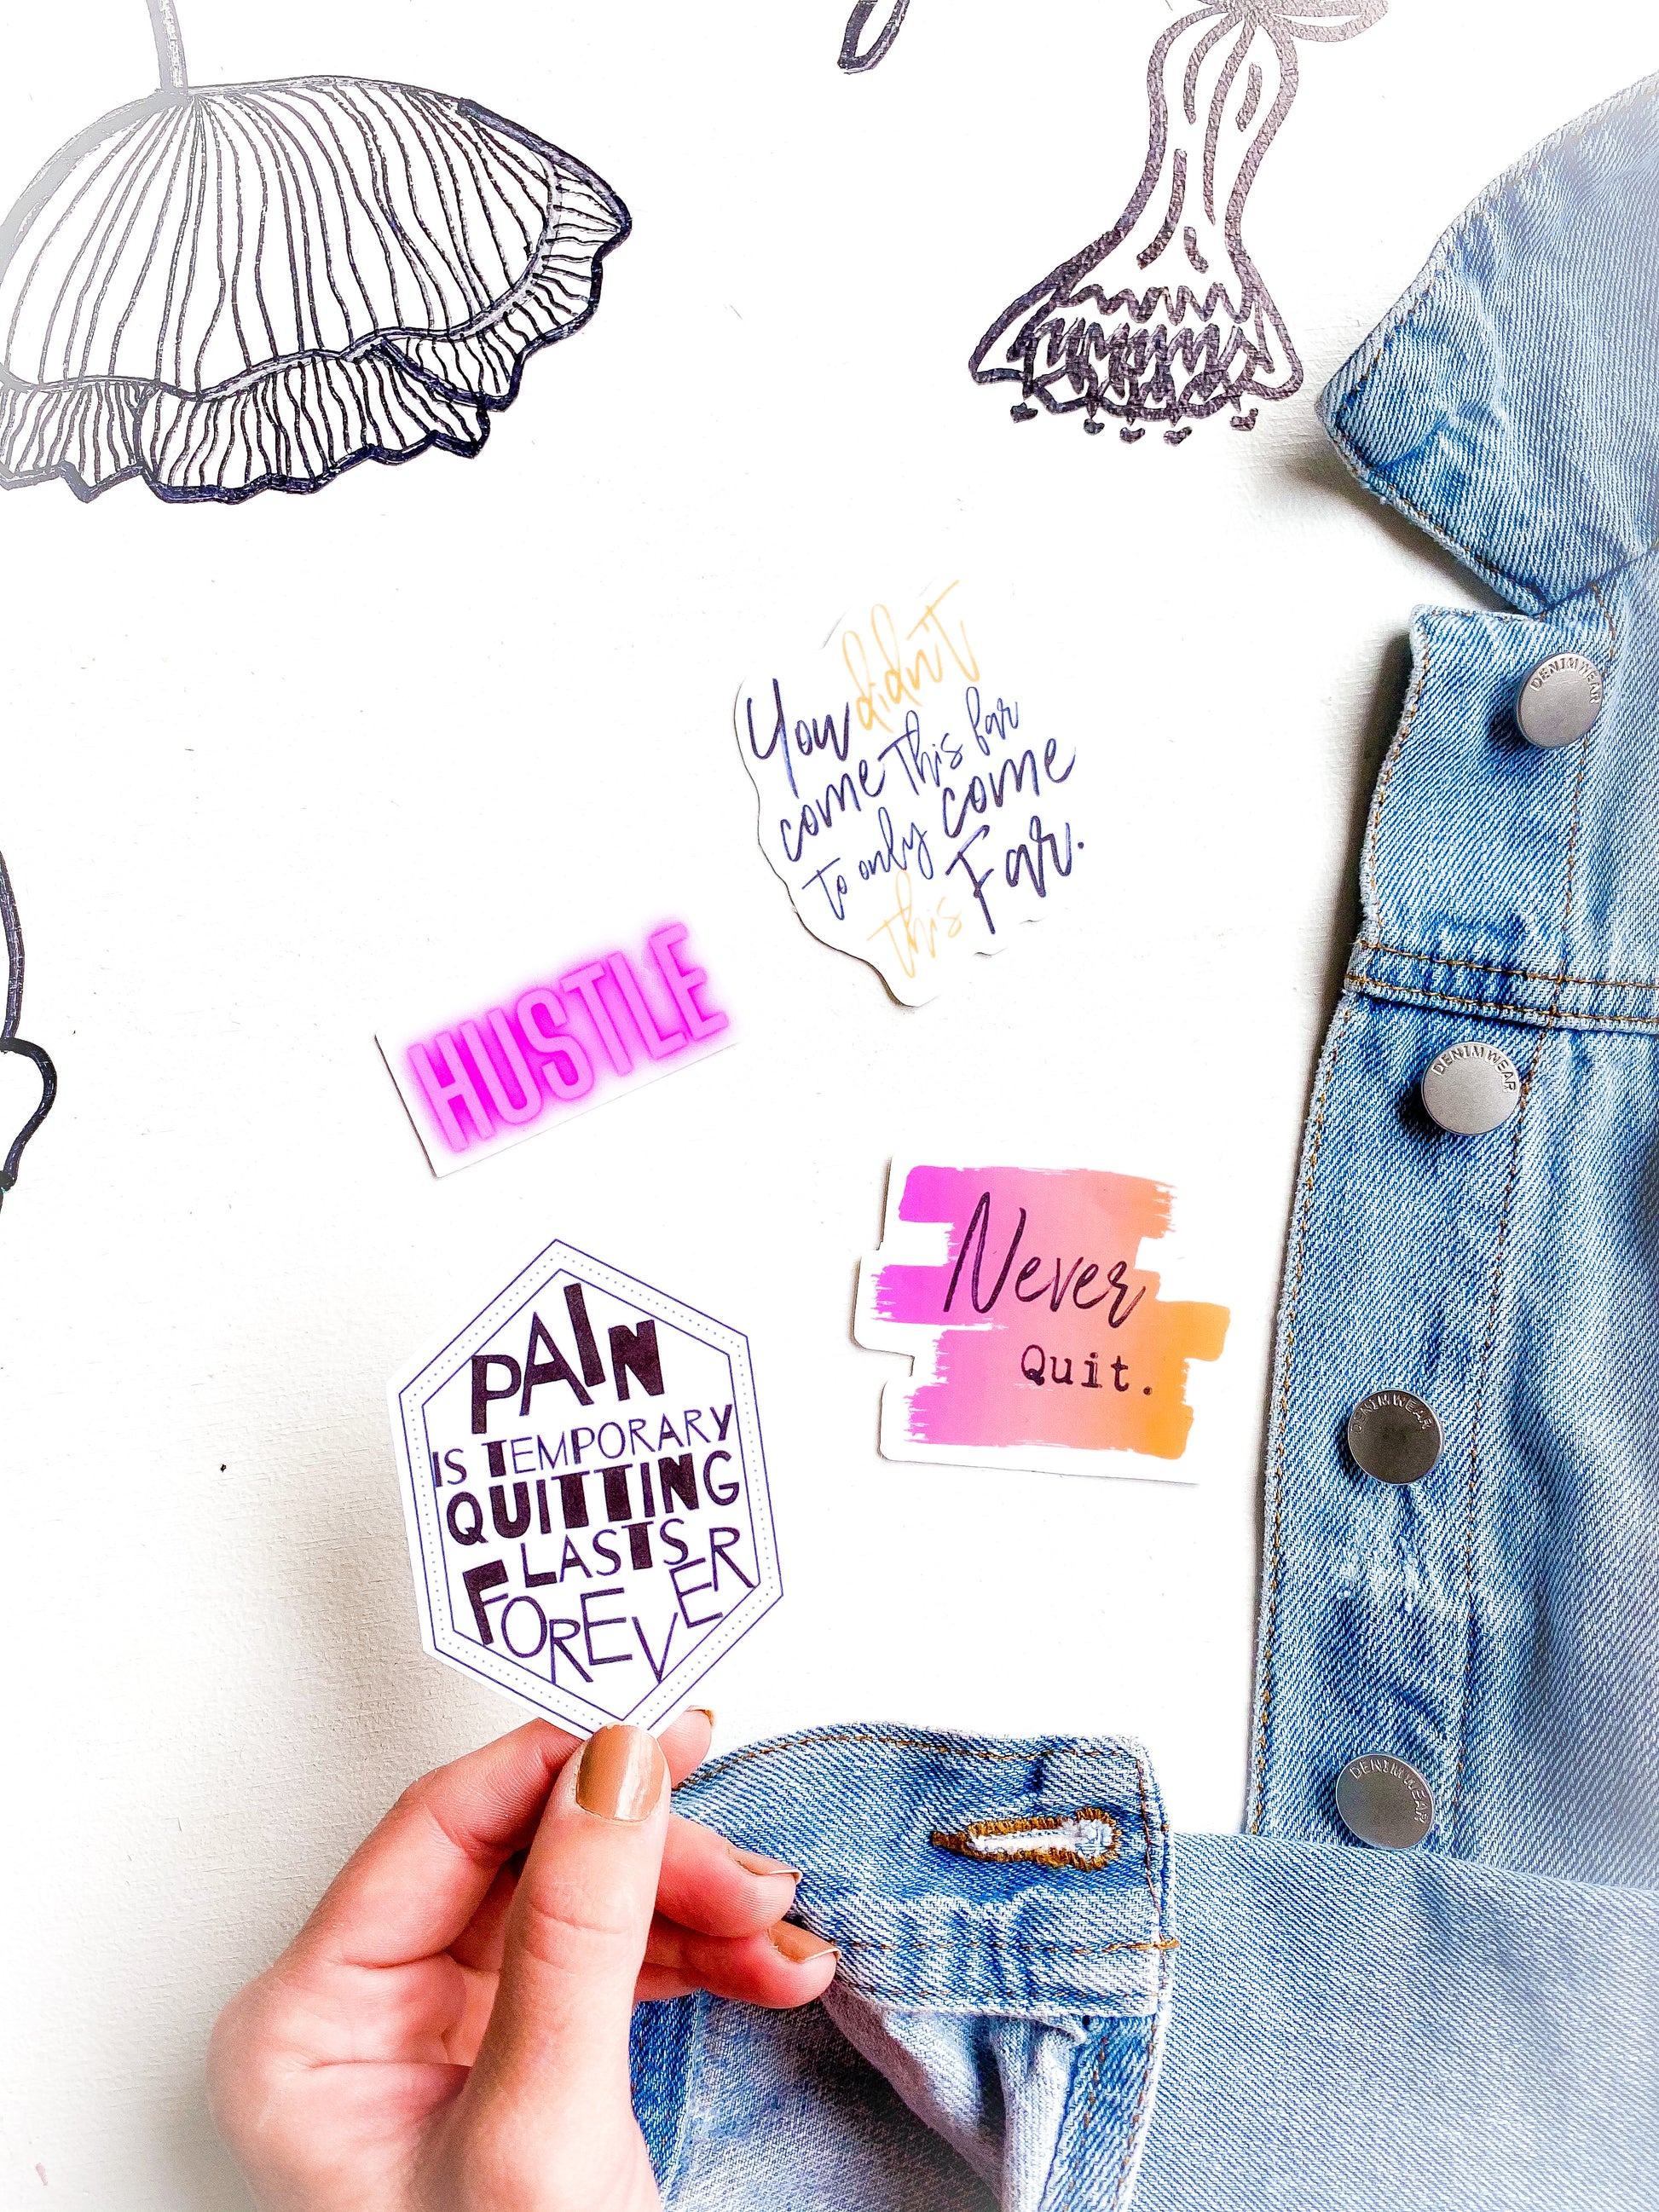 You didn't
come This far
To only come
This Far.
HUSTLE
Never
Quit.
PAIN
IS TEMPORARY
QUITTING
LASTS
FOREVER
DENIMWEAR
DENIMWEAR
DENIMWEAR
DENIMWEAR